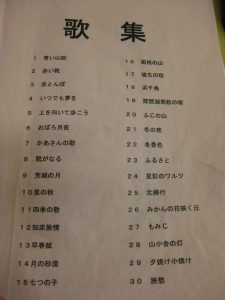 歌集
1 青い山脈
2 赤い靴
3 赤とんぼ
4 いつでも夢を
5 上を向いて歩こう
6 おぼろ月夜
7 かあさんの歌
8 靴がなる
9 荒城の月
10 里の秋
11 四季の歌
12 知床旅情
13 早春賦
14 月の砂漠
15 七つの子
16 箱根の山
17 埴生の宿
18 浜千鳥
19 琵琶湖周航の歌
20 ふじの山
21 冬の夜
22 冬景色
23 ふるさと
24 星影のワルツ
25 北帰行
26 みかんの花咲く丘
27 もみじ
28 山小舎の灯
29 夕焼け小焼け
30 旅愁